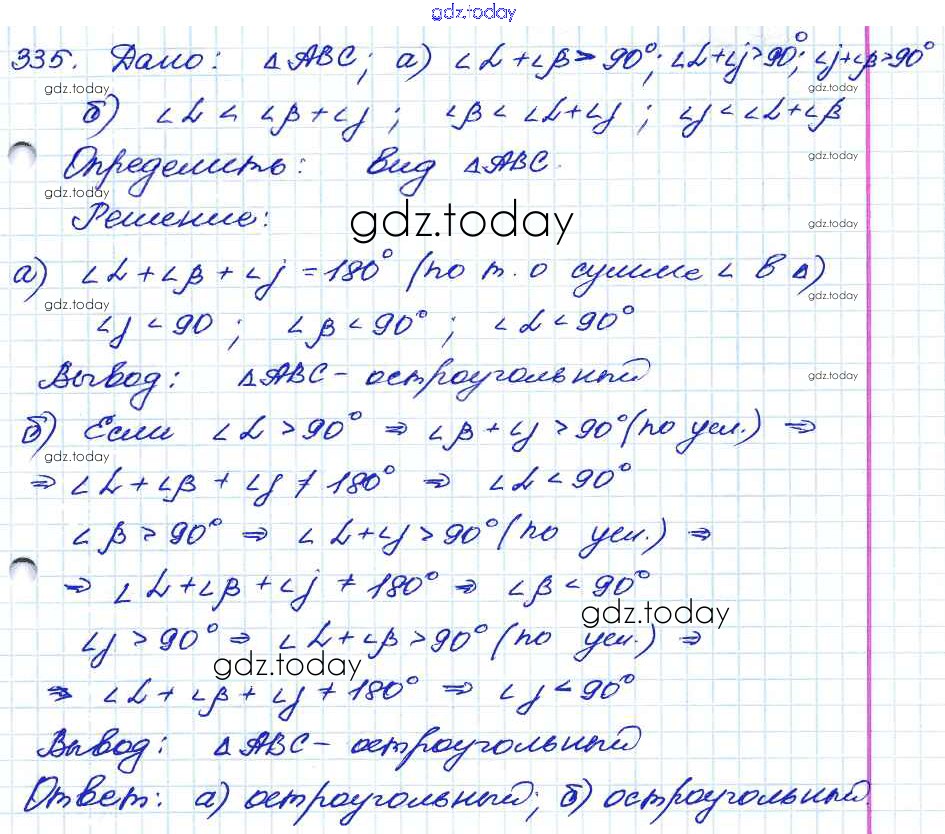 gdz.today
335. Дано: △ABC; а) ∠α+∠β>90°; ∠α+∠j>90°; ∠j+∠β>90°
gdz.today gdz.today
б) ∠α<∠β+∠j; ∠β<∠α+∠j; ∠j<∠α+∠β
gdz.today
Определить: вид △ABC.
gdz.today
Решение:
gdz.today gdz.today
а) ∠α+∠β+∠j=180° (по т. о сумме ∠ в △)
gdz.today gdz.today
∠j<90; ∠β<90°; ∠α<90°
Вывод: △ABC - остроугольный
gdz.today
б) Если ∠α>90° ⇒ ∠β+∠j>90° (по усл.) ⇒
gdz.today
⇒ ∠α+∠β+∠j≠180° ⇒ ∠α<90°
∠β>90° ⇒ ∠α+∠j>90° (по усл.) ⇒
⇒ ∠α+∠β+∠j≠180° ⇒ ∠β<90°
gdz.today
∠j>90° ⇒ ∠α+∠β>90° (по усл.) ⇒
gdz.today
⇒ ∠α+∠β+∠j≠180° ⇒ ∠j<90°
Вывод: △ABC - остроугольный
Ответ: а) остроугольный; б) остроугольный.